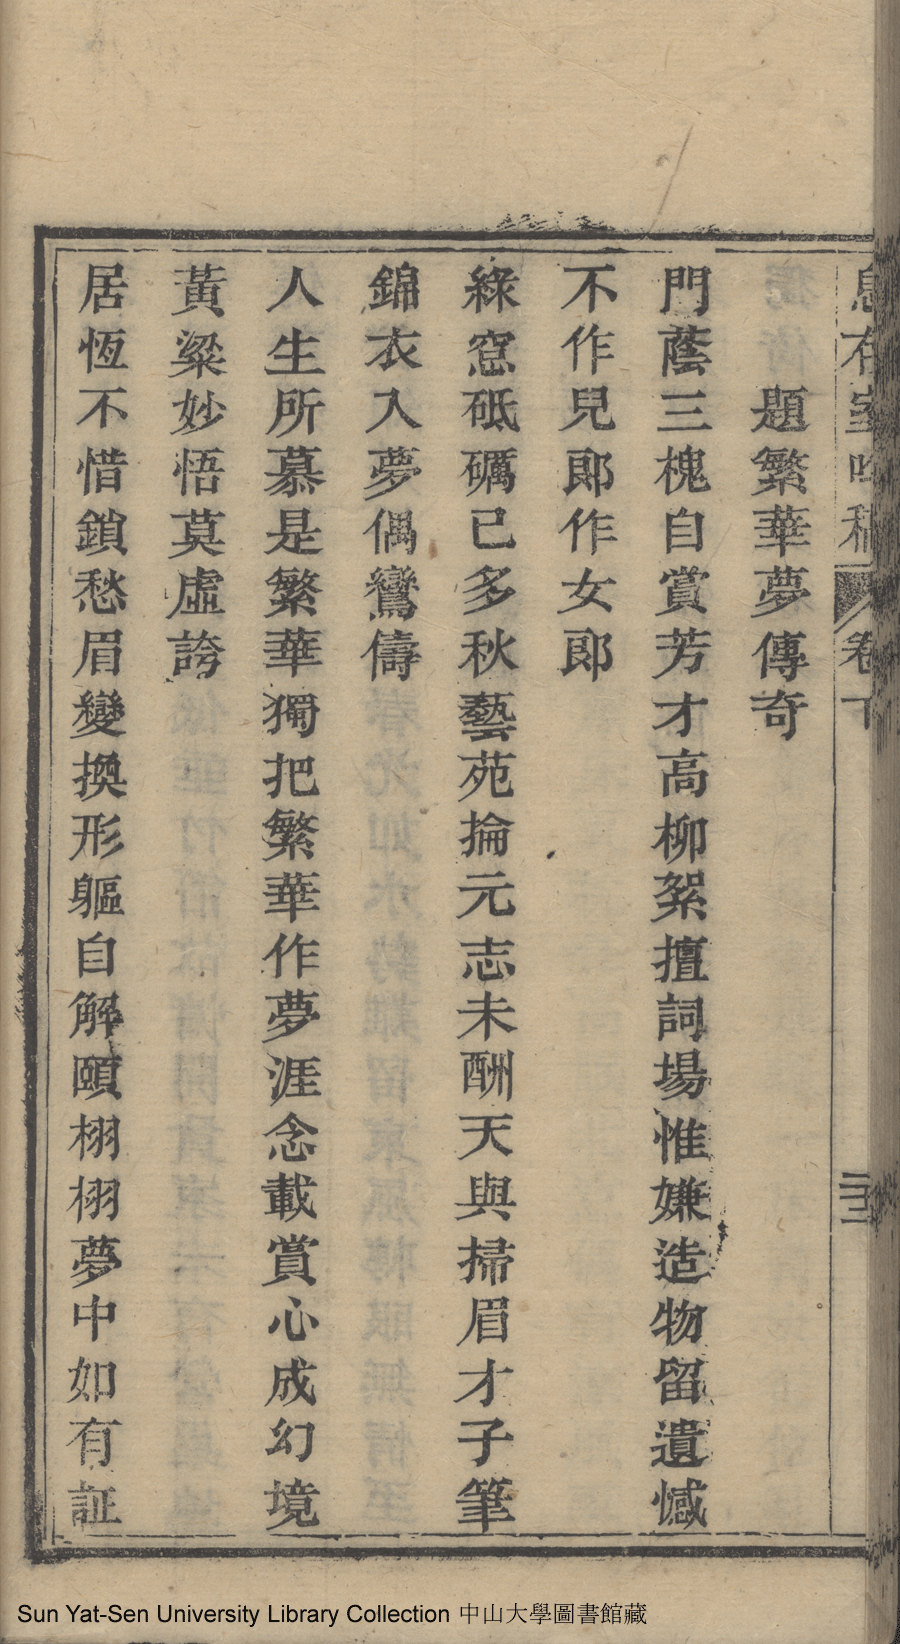 息存室吟稿 卷下 二十二
題繁華夢傳奇
門蔭三槐自賞芳才高柳絮擅詞場惟嫌造物留遺憾
不作兒郞作女郞
綠窻砥礪已多秋藝苑掄元志未酬天與掃眉才子筆
錦衣入夢偶鸞儔
人生所慕是繁華獨把繁華作夢涯念載賞心成幻境
黃粱妙悟莫虛誇
居恆不惜鎖愁眉變換形軀自解頤栩栩夢中如有証
Sun Yat-Sen University Library Collection 中山大學圖書館藏